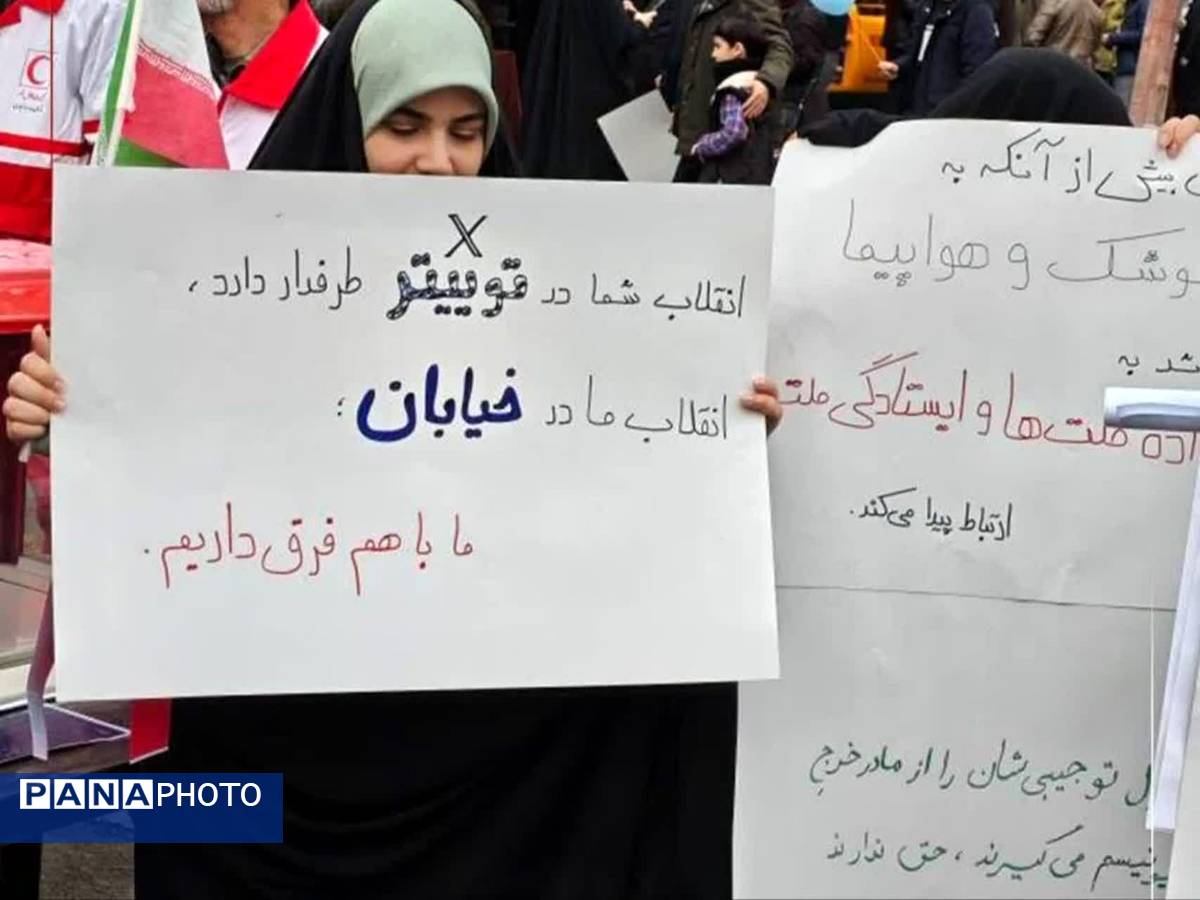 X
انقلاب شما در توییتر طرفدار دارد،
انقلاب ما در خیابان؛
ما با هم فرق داریم.
بیش از آنکه به
وشک و هواپیما
شد به
اده ملت‌ها و ایستادگی ملت
ارتباط پیدا می‌کند.
ل توجیبی‌شان را از مادرخرج
یونیسم می‌گیرند، حق ندارند
PANAPHOTO